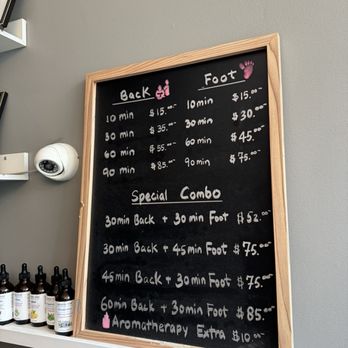 Back
10 min $15.00
30 min $35.00
60 min $55.00
90 min $85.00
Foot
10 min $15.00
30 min $30.00
60 min $45.00
90 min $75.00
Special Combo
30min Back + 30min Foot $52.00
30min Back + 45min Foot $75.00
45min Back + 30min Foot $75.00
60min Back + 30min Foot $85.00
Aromatherapy Extra $10.00